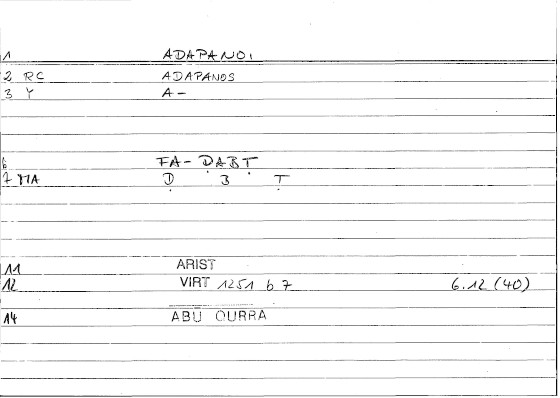 1 ADAPANOI
2 RC ADAPANOS
3 Y A-
6 FA- ḌABṬ
7 MA Ḍ B Ṭ
11 ARIST
12 VIRT 1251 b 7 6.12 (40)
14 ABŪ QURRA